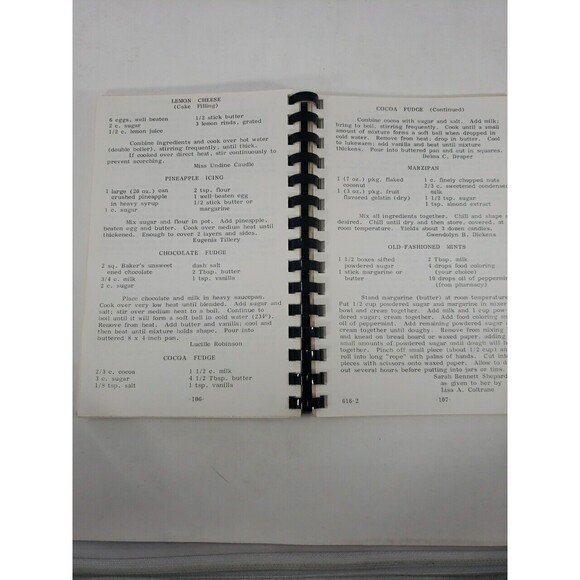 LEMON CHEESE
(Cake Filling)
6 eggs, well beaten 1/2 stick butter
2 c. sugar 2 lemon rinds, grated
1/2 c. lemon juice
Combine ingredients and cook over hot water
(double boiler), stirring frequently, until thick.
If cooked over direct heat, stir continuously to
prevent scorching.
Miss Undine Caudle
PINEAPPLE ICING
1 large (20 oz.) can 2 tsp. flour
crushed pineapple 1 well-beaten egg
in heavy syrup 1/2 stick butter or
1 c. sugar margarine
Mix sugar and flour in pot. Add pineapple,
beaten egg and butter. Cook over medium heat until
thickened. Enough to cover 2 layers and sides.
Eugenia Tillery
CHOCOLATE FUDGE
2 sq. Baker's unsweet- dash salt
ened chocolate 2 Tbsp. butter
3/4 c. milk 1 tsp. vanilla
2 c. sugar
Place chocolate and milk in heavy saucepan.
Cook over very low heat until blended. Add sugar and
salt; stir over medium heat to a boil. Continue to
boil until it will form a soft ball in cold water (234°).
Remove from heat. Add butter and vanilla; cool and
then beat until mixture holds shape. Pour into
buttered 8 x 4-inch pan.
Lucille Robinson
COCOA FUDGE
2/3 c. cocoa 1 1/2 c. milk
3 c. sugar 4 1/2 Tbsp. butter
1/8 tsp. salt 1 tsp. vanilla
-106-
COCOA FUDGE (Continued)
Combine cocoa with sugar and salt. Add milk;
bring to boil, stirring frequently. Cook until a small
amount of mixture forms a soft ball when dropped in
cold water. Remove from heat; drop in butter. Cool
to lukewarm; add vanilla and beat until mixture
thickens. Pour into buttered pan and cut in squares.
Debra C. Draper
MARZIPAN
1 (7 oz.) pkg. flaked 1 c. finely chopped nuts
coconut 2/3 c. sweetened condensed
1 (3 oz.) pkg. fruit milk
flavored gelatin (dry) 1 1/2 tsp. sugar
1 tsp. almond extract
Mix all ingredients together. Chill and shape as
desired. Chill until dry and then store, covered, at
room temperature. Yields about 3 dozen candies.
Gwendolyn B. Dickens
OLD-FASHIONED MINTS
1 1/2 boxes sifted 2 Tbsp. milk
powdered sugar 4 drops food coloring
1 stick margarine or (your choice)
butter 10 drops oil of peppermint
(from pharmacy)
Stand margarine (butter) at room temperature.
Put 1/2 cup powdered sugar and margarine in mixer
bowl and cream together. Add milk and 1 cup
powdered sugar; cream together. Add food coloring and
oil of peppermint. Add remaining powdered sugar
cream together until doughy. Remove from mixing
and knead on bread board or waxed paper, adding
small amounts of powdered sugar until dough will
together. Pinch off small piece (about 1/2 cup) and
roll into long "rope" with palms of hands. Cut into
pieces with scissors onto waxed paper. Allow to
out several hours before putting into jars or tins.
Sarah Bennett
as given to her by
Lisa A. Coltrane
616-2 -107